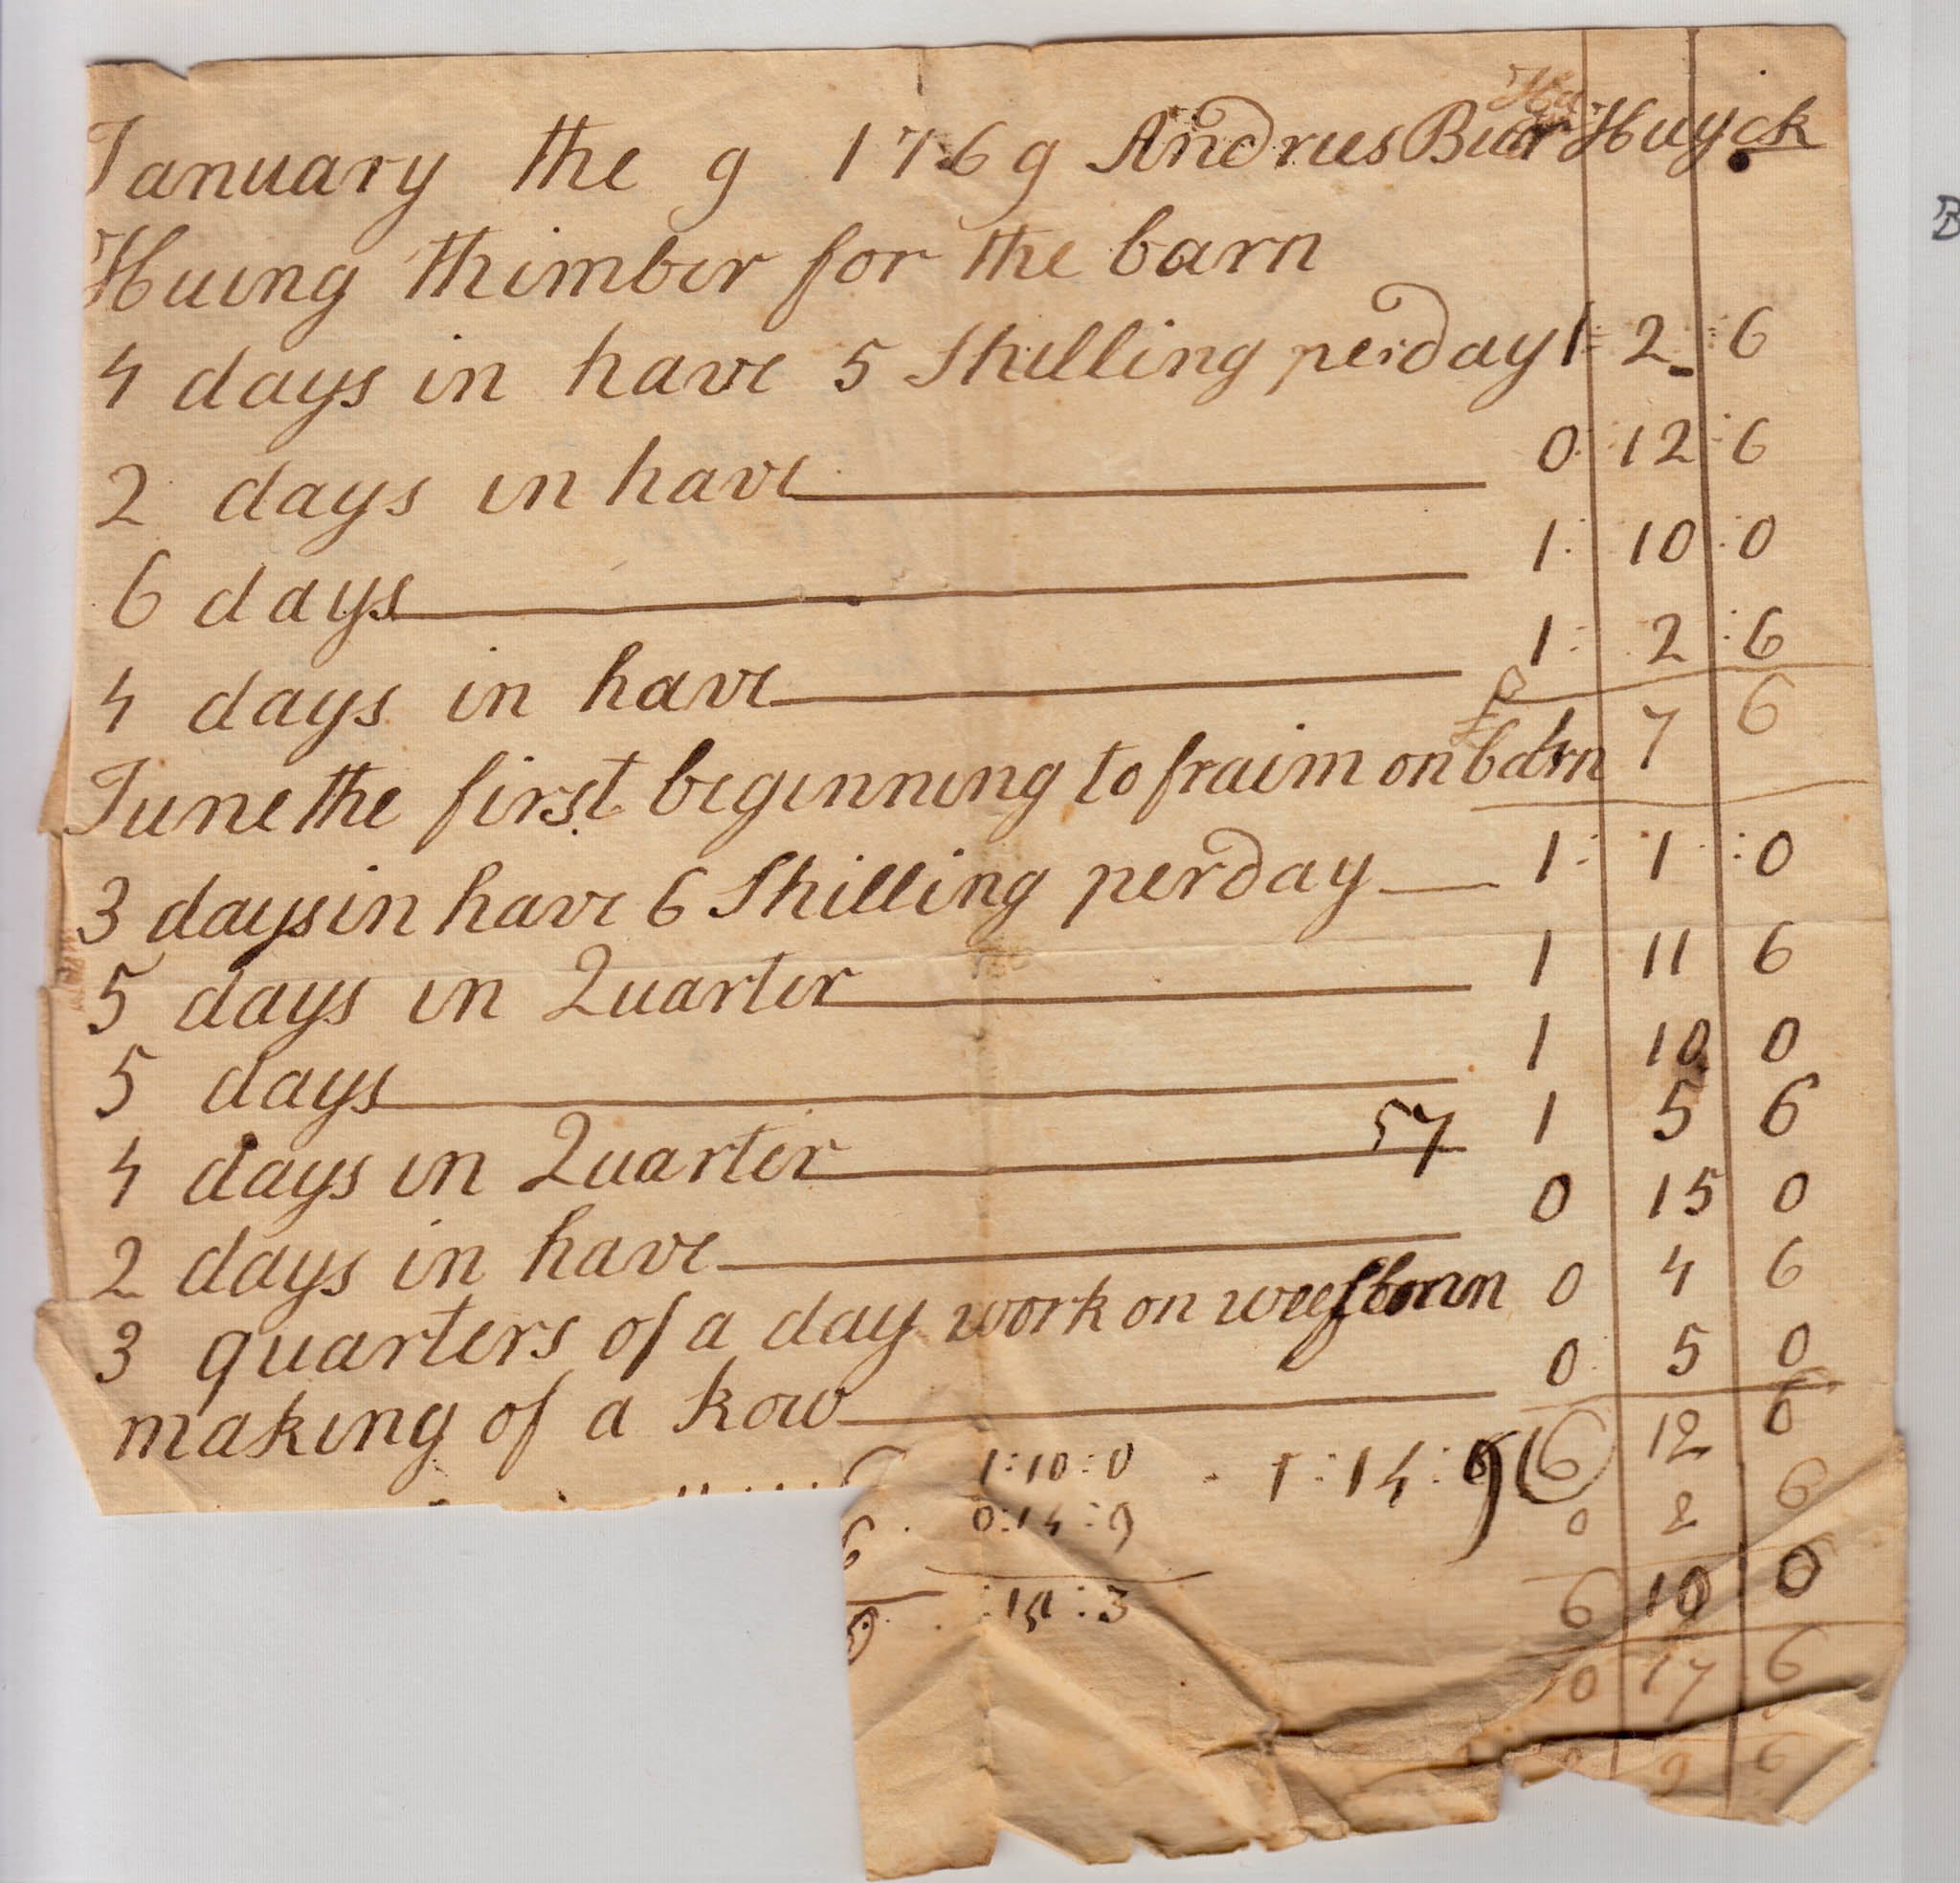 January the 9 1769 Andries Bur Huyck
Huing thimber for the barn
4 days in have 5 Shilling per day 1 : 2 : 6
2 days in have 0 : 12 : 6
6 days 1 : 10 : 0
4 days in have 1 : 2 : 6
£ 4 7 6
June the first beginning to fraim on barn
3 days in have 6 Shilling per day 1 : 1 : 0
5 days in Quarter 1 11 6
5 days 1 10 0
4 days in Quarter 57 1 5 6
2 days in have 0 15 0
3 quarters of a day work on 0 4 6
making of a kow 0 5 0
6 12 6
1:10:0 1:14:9
0:14:9 0 2 6
:14:3 6 10 0
10 17 6
9 6
B